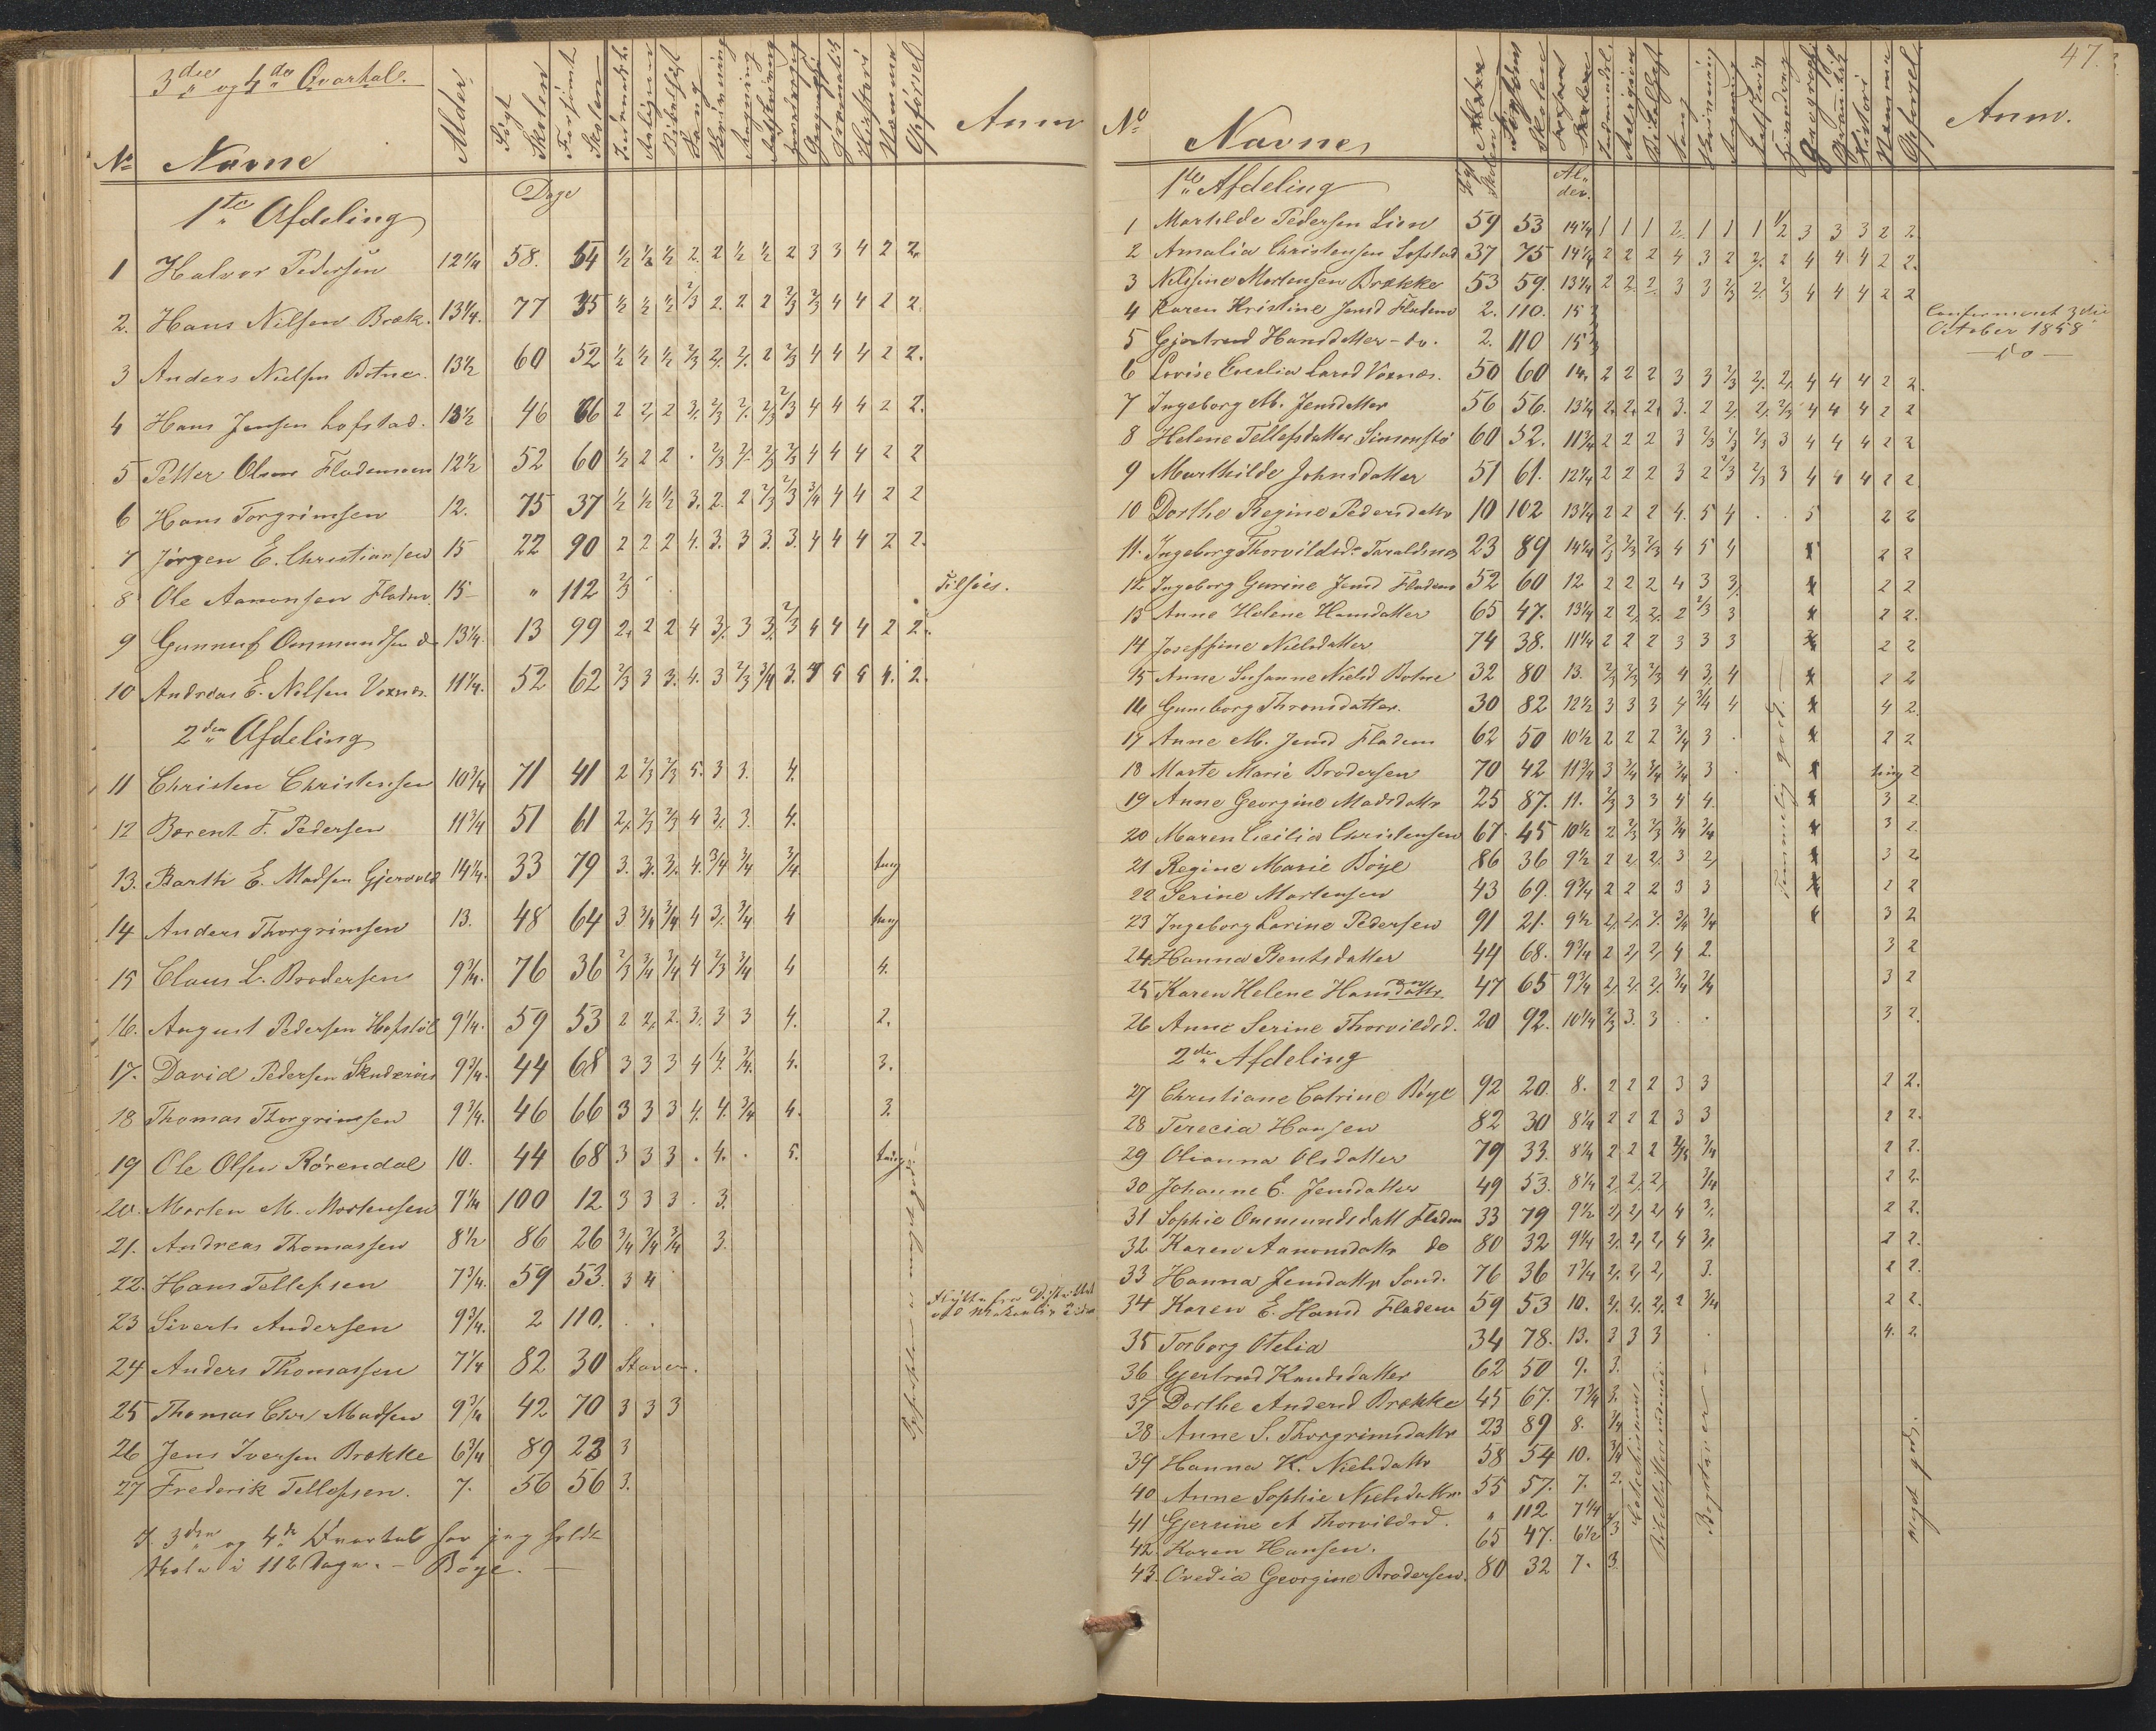 3die og 4de Qvartal.
No Navne Alder Søgt Skolen Forsømt Skolen Religion Sang Skrivning Regning Historie Opførsel Anm
1te Afdeling Dage
1 Halvor Pedersen 12 1/4 58. 54 1/2 1/2 1/2 2 2 1/2 1/2 2 3 3 4 2 2.
2. Hans Nilsen Bræk. 13 1/4. 77 35 1/2 1/2 1/2 2/3 2. 2 2 2/3 2/3 4 4 2 2.
3 Anders Nielsen Botne. 13 1/2 60 52 1/2 1/2 1/2 2/3 2. 2. 2 2/3 4 4 4 2 2.
4 Hans Jensen Lofstad. 13 1/2 46 66 2 2 2 3. 2/3 2. 2/3 2/3 4 4 4 2 2.
5 Petter Olsen Flademoen 12 1/2 52 60 1/2 2 2 . 2/3 2. 2/3 2/3 4 4 4 2 2
6 Hans Torgrimsen 12. 75 37 1/2 1/2 1/2 3. 2. 2 2/3 2/3 3/4 4 4 2 2
7 Jørgen E. Christiansen 15 22 90 2 2 2 4. 3. 3 3. 3. 4 4 4 2 2.
8 Ole Aamonsen Fladm. 15 " 112 2/3 Tilsøes.
9 Gunnuf Ommundsen do 13 1/4. 13 99 2. 2 2 4 3. 3 3. 2/3 4 4 4 2 2.
10 Andreas E. Nilsen Voxnæs. 11 1/4. 52 62 2/3 3 3. 4. 3 2/3 3/4 3. 4 4 4 4. 2.
2den Afdeling
11 Christen Christensen 10 3/4 71 41 2 2/3 2/3 5. 3 3. 4.
12 Berent F. Pedersen 11 3/4 51 61 2. 2/3 2/3 4 3. 3. 4.
13. Barth E. Madsen Gjervold 14 1/4. 33 79 3. 3. 3. 4. 3/4 3/4 3/4. tung
14 Anders Thorgrimsen 13. 48 64 3 3/4 3/4 4 3. 3/4 4 tung
15 Claus L. Brodersen 9 3/4. 76 36 2/3 3/4 3/4 4 2/3 3/4 4 4.
16. August Pedersen Hofstøl 9 1/4. 59 53 2 2. 2. 3. 3 3 4. 2.
17. David Pedersen Skuderøis 9 3/4. 44 68 3 3 3 4 4. 3/4. 4. 3.
18 Thomas Thorgrimsen 9 3/4. 46 66 3 3 3 4. 4. 3/4 4. 3.
19 Ole Olsen Rørendal 10. 44 68 3 3 3 . 4. . 5. tung
20. Morten M. Mortensen 7 1/4 100 12 3 3 3 . 3.
21. Andreas Thomassen 8 1/2 86 26 3/4 3/4 3/4 3.
22. Hans Tellefsen 7 3/4. 59 53. 3 4
23 Siverts Andersen 9 3/4. 2 110. Flyttet fra Distriktet
24 Anders Thomassen 7 1/4 82 30 Staver.
25 Thomas Chr. Madsen 9 3/4 42 70 3 3 3
26 Jens Iversen Brække 6 3/4 89 23 3
27 Frederik Tellefsen. 7. 56 56 3.
Opførselen er meget god.
I 3die og 4de Kvartal har jeg holdt
Skole i 112 Dage. — Boye. —
47.
No Navne Religion Sang Skrivning Geographi Historie Opførsel Anm.
1te Afdeling Søgt Skolen Alder.
1 Marthilde Pedersen Lien 59 53 14 1/4 1 1 1 2. 1 1 1 1/2 3 3 3 2 2
2 Amalia Christensen Lofstad 37 75 14 1/4 2 2 2 4 3 2 2. 2 4 4 4 2 2.
3 Nilsine Mortensen Brække 53 59. 13 1/4 2 2. 2. 3 3 2/3 2. 2/3 4 4 4 2 2
4 Karen Kristine Jensd Fladem 2. 110. 15 Confirmeret 3die
October 1858
5 Gjertrud Hansdatter - do. 2. 110 15 — do —
6 Lovise Cecelia Larsd Voxnæs. 50 60 14. 2 2 2 3 3 2/3 2. 2. 4 4 4 2 2.
7 Ingeborg M. Jensdatter 56 56. 13 1/4 2. 2. 2. 3. 2 2. 2. 2/3 4 4 4 2 2
8 Helene Tellefsdatter Simonstø 60 52. 11 3/4 2 2 2 3 2/3 2/3 2/3 3 4 4 4 2 2
9 Marthilde Johnsdatter 51 61. 12 1/4 2 2 2 3 2 2/3 2/3 3 4 4 4 2 2
10 Dorthe Regine Pedersdattr 10 102 13 1/4 2 2 2 4. 5 4 . . 5 2 2
11. Ingeborg Thorvildsd. Taraldsnes 23 89 14 1/4 2/3 2/3 2/3 4 5 4 2 2
12 Ingeborg Gurine Jensd Fladem 52 60 12 2 2 2 4 3 3. 2 2
13 Anne Helene Hansdatter 65 47. 13 1/4 2 2. 2. 2 2/3 3 2 2.
14 Josefine Nielsdatter 74 38. 11 1/4 2 2 2 3 3 3 2 2
15 Anne Susanne Nielsd Botne 32 80 13. 2/3 2/3 2/3 4 3. 4 2 2
16 Gunborg Thronsdatter. 30 82 12 1/2 3 3 3 4 3/4 4 4 2
17 Anne M. Jensd Fladem 62 50 10 1/2 2 2 2 3/4 3 . 2 2
18 Marte Marie Brodersen 70 42 11 3/4 3 3/4 3/4 3/4 3 . tung 2
19 Anne Georgine Madsdattr 25 87. 11. 2/3 3 3 4 4. 3 2
20 Maren Cecilia Christensen 67. 45 10 1/2 2 2/3 2/3 3/4 3/4 3 2
21 Regine Marie Boye 86 36 9 1/2 2 2. 2. 3 2. 3 2
22 Serine Mortensen 43 69. 9 3/4 2 2 2 3 3 2 2
23 Ingeborg Karine Pedersen 91 21. 9 1/2 2. 2. 2. 3/4 3/4 3 2
24. Hanna Bentsdatter 44 68. 9 3/4 2 2. 2. 4 2. 3 2
25 Karen Helene Hansdattr. 47 65 9 3/4 2. 2. 2. 3/4 3/4 3 2
26 Anne Serine Thorvildsd. 20 92. 10 1/4 2/3 3. 3 . . 3 2.
Temmelig godt.
2de Afdeling
27 Christiane Catrine Boye 92 20. 8. 2 2 2 3 3 2 2.
28 Terecia Hansen 82 30 8 1/4 2 2 2 3 3 2 2.
29 Olianna Olsdatter 79 33. 8 1/4 2 2 2 2/3 3/4 2 2.
30 Johanne E. Jensdatter 49 53. 8 1/4 2. 2. 2. 3/4 2 2.
31 Sophie Ommundsdatt Fladm 33 79 9 1/2 2. 2. 2. 4 3. 2 2.
32 Karen Aamonsdattr do 80 32 9 1/4 2. 2. 2. 4 3. 2 2.
33 Hanna Jensdattr Sond. 76 36 7 3/4 2. 2. 2. 3. 2 2.
34 Karen E. Hansd Fladem 59 53 10. 2. 2. 2. 2 3/4 2 2.
35 Torborg Otelia 34 78. 13. 3 3 3 . 4. 2.
36 Gjertrud Knudsdatter 62 50 9. 3.
37 Dorthe Andersd Brække 45 67. 7 3/4 3.
38 Anne S. Thorgrimsdattr 23 89 8. 3/4
39 Hanna K. Nielsdattr 58 54 10. 3/4
40 Anne Sophie Nielsdattr. 55 57. 7. 2.
41 Gjersine A Thorvildsd. " 112 7 1/4
42. Karen Hansen. 65 47. 6 1/2 2/3
43. Ovedia Georgine Brodersen. 80 32 7. 3.
Bogstaver —
meget god.